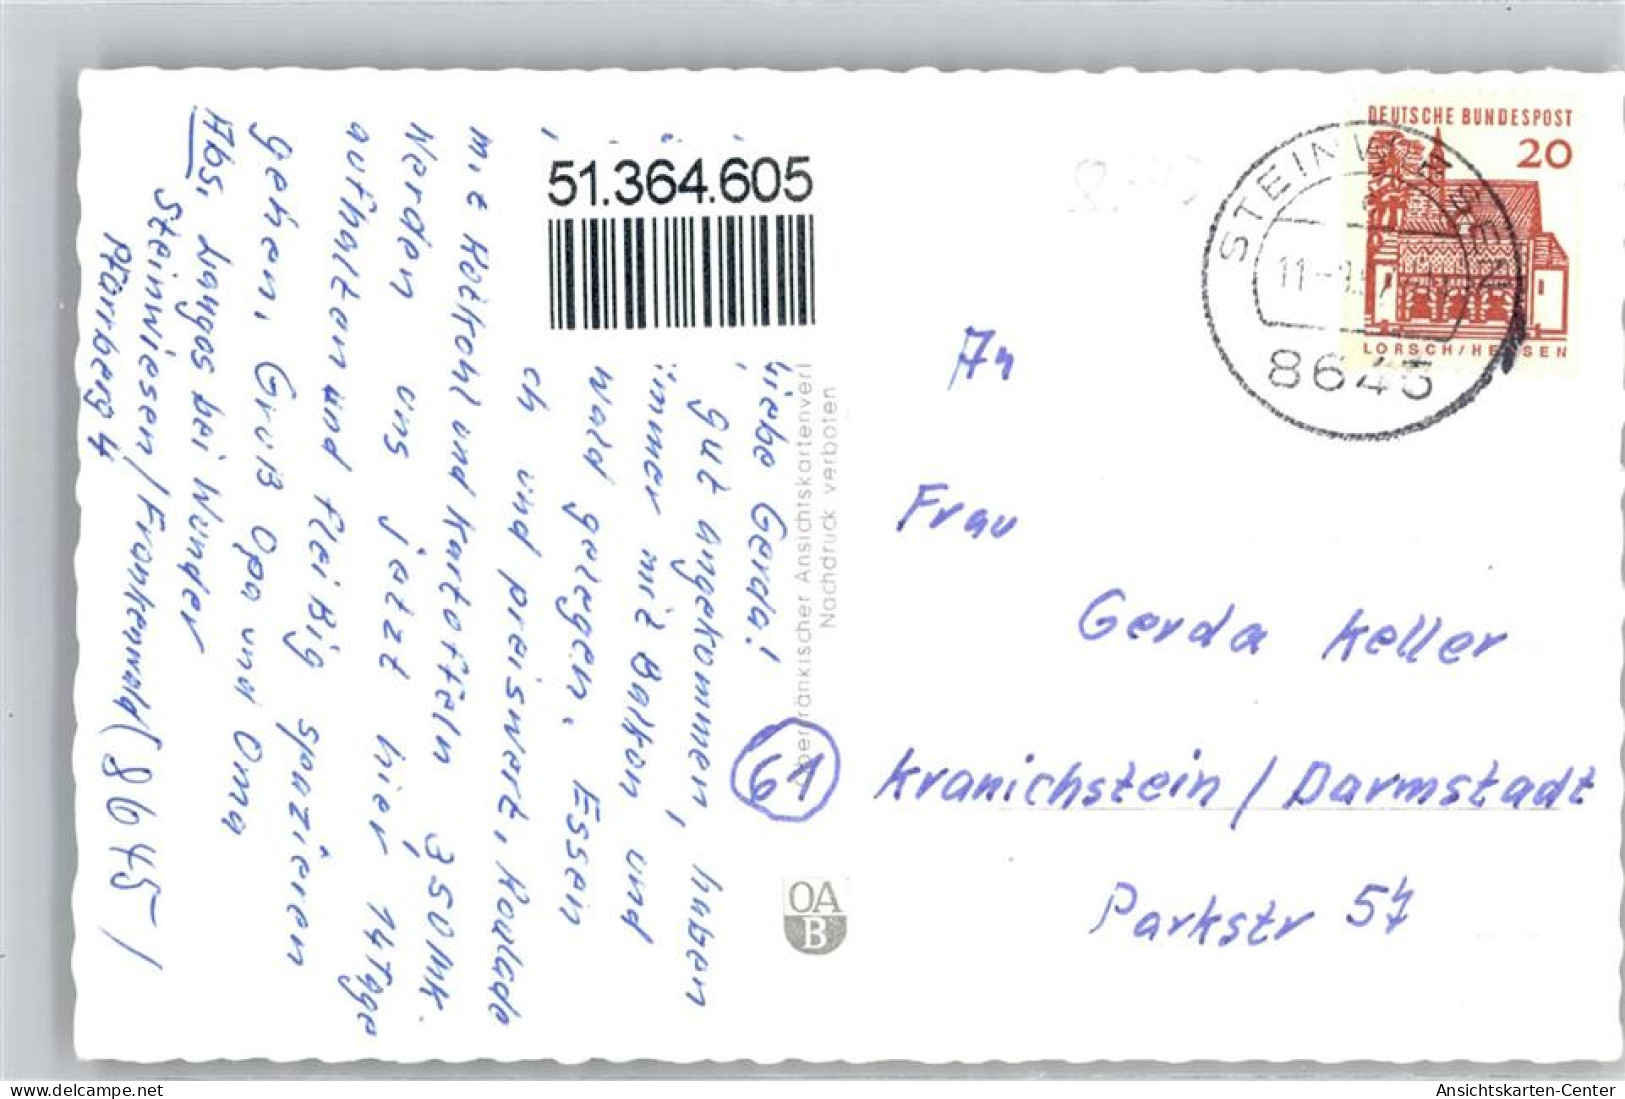 51.364.605
Liebe Gerda!
gut angekommen, haben
immer mit Balkon und
Wald gelegen. Essen
ch und preiswert, Roulade
mit Rotkohl und Kartoffeln 3,50 MK.
Werden uns jetzt hier 14 Tage
aufhalten und fleißig spazieren
gehen, Gruß Opa und Oma
Abs, Langos bei Wunder
Steinwiesen/Frankenwald (8645)
Pfarrberg 4
berfränkischer Ansichtskartenverl
Nachdruck verboten
OA
B
DEUTSCHE BUNDESPOST
20
LORSCH/HESSEN
STEINWIESEN
8645
An
Frau
Gerda Keller
61
Kranichstein / Darmstadt
Parkstr 57
oldthing.de
Ansichtskarten-Center